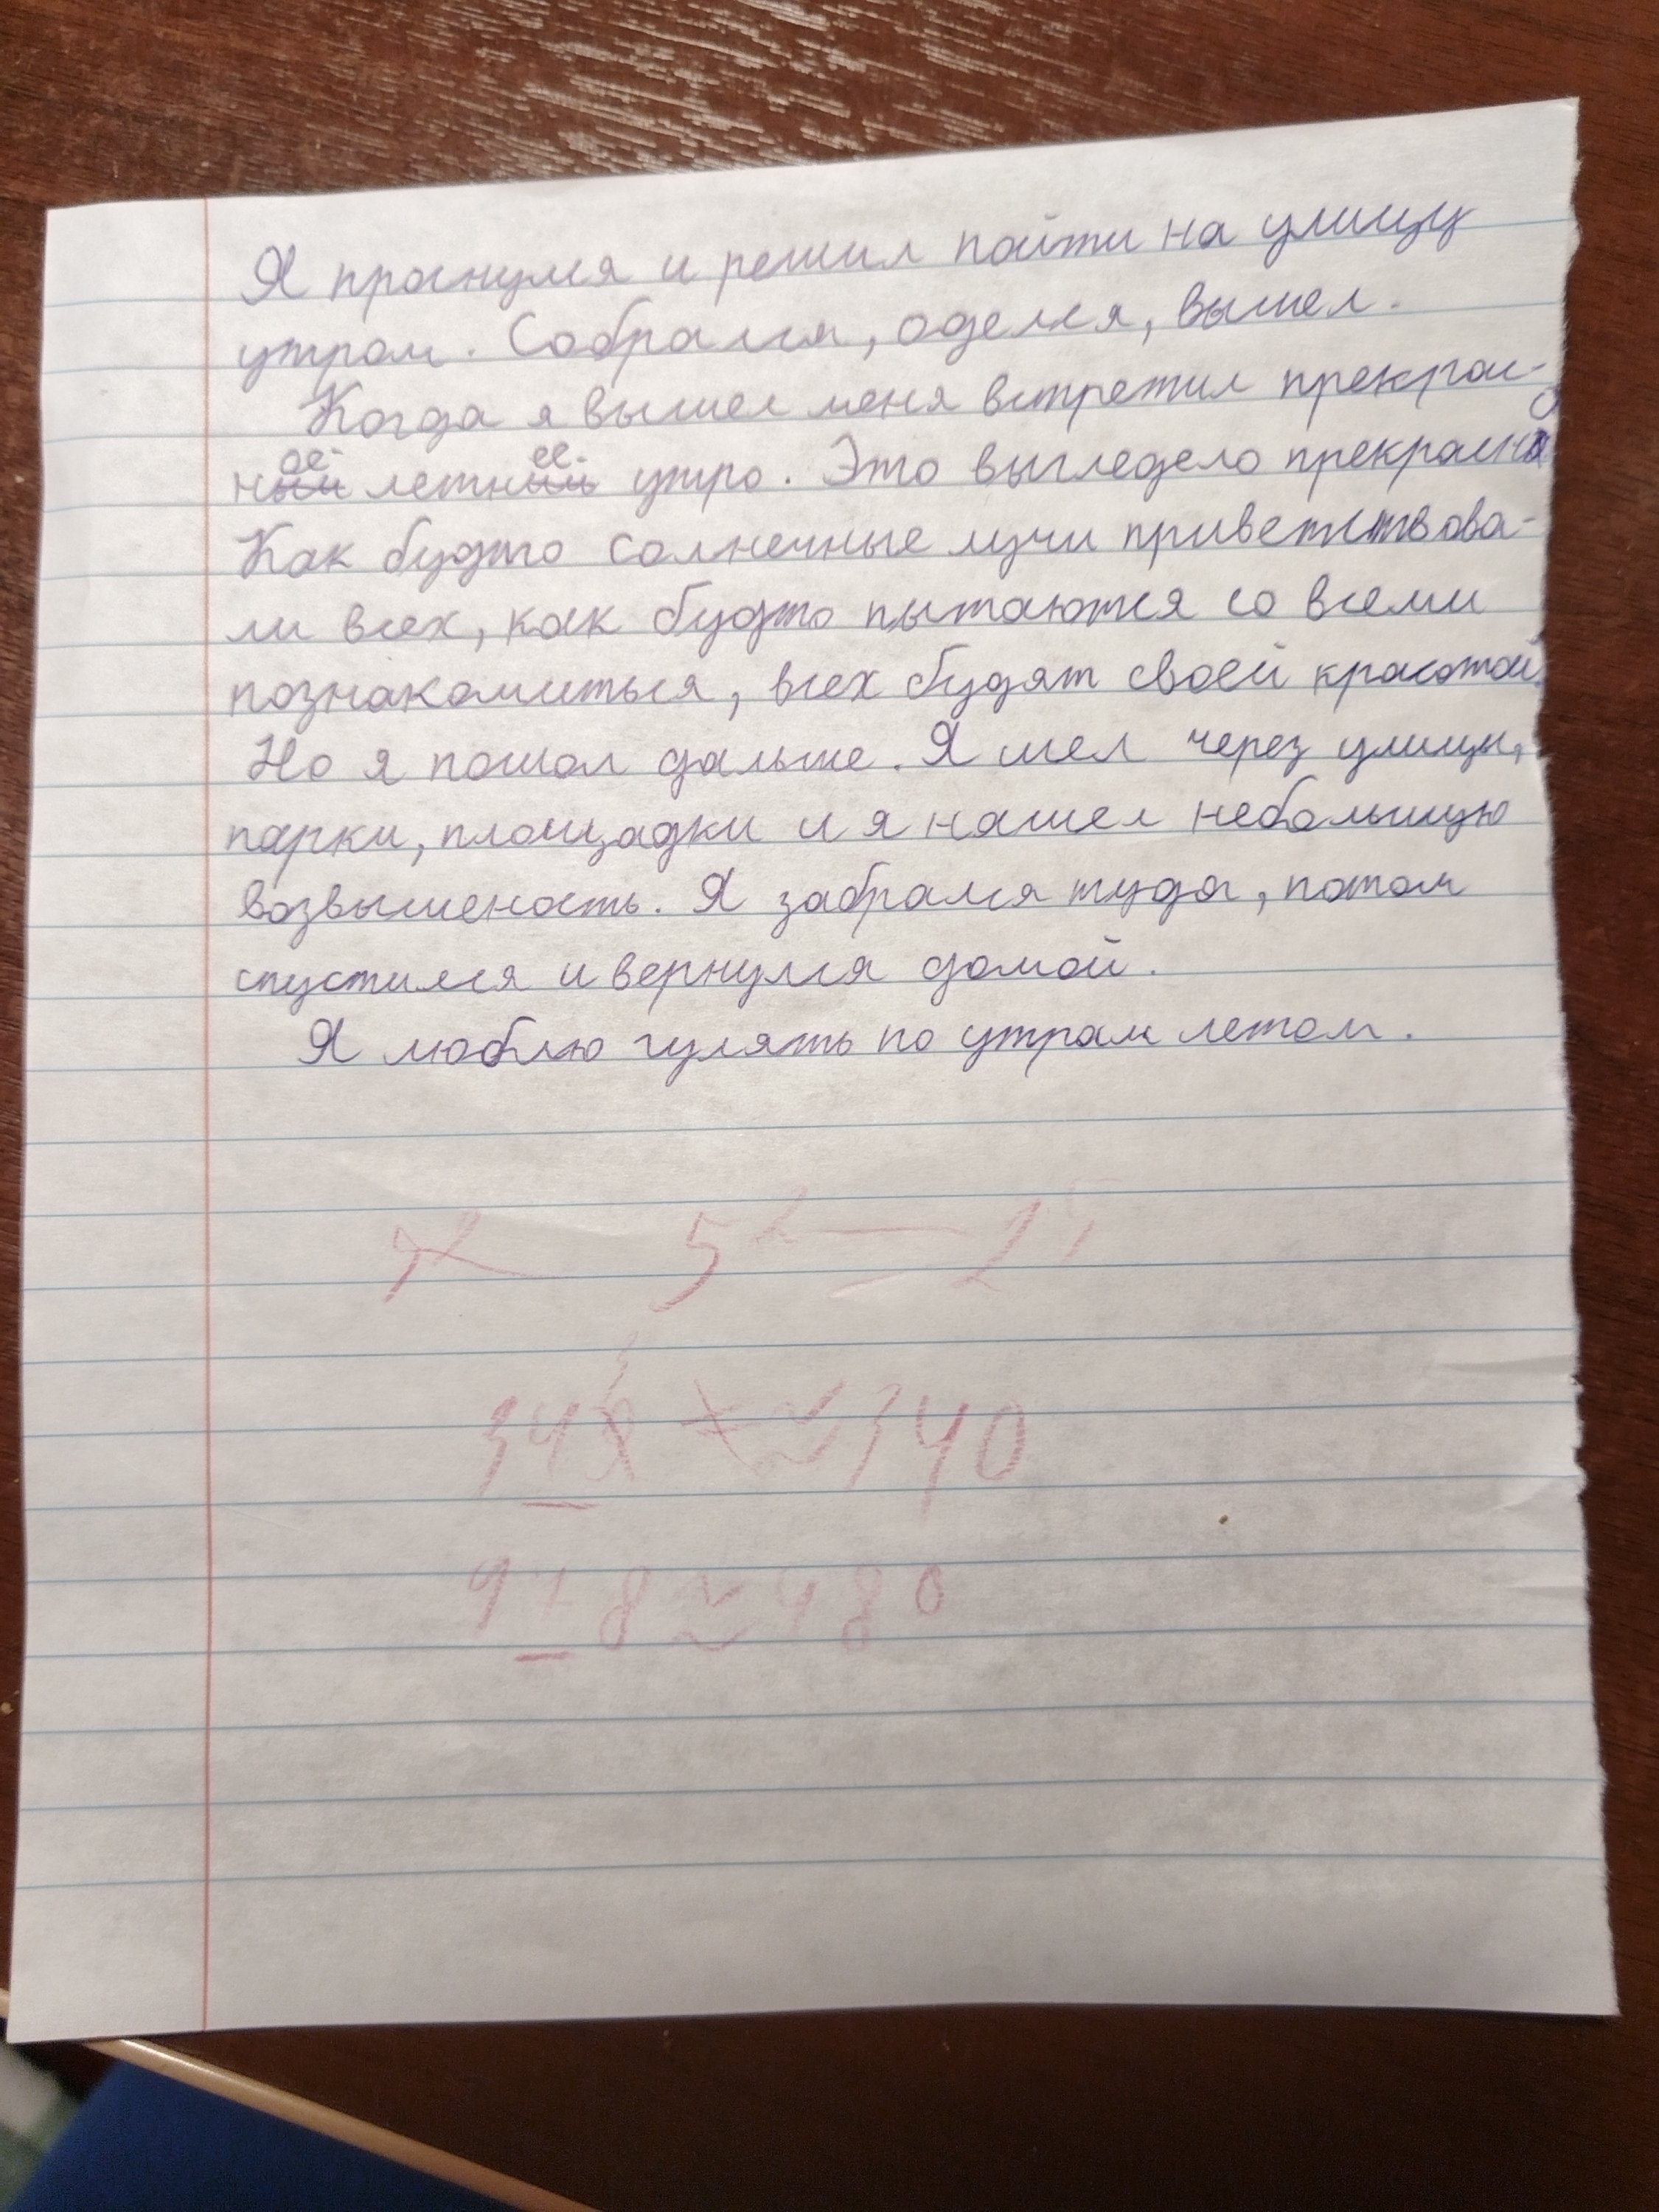 Я проснулся и решил пойти на улицу
утром. Собрался, оделся, вышел.
Когда я вышел меня встретил прекрас-
ное летнее утро. Это выгледело прекрасно
Как будто солнечные лучи приветствова-
ли всех, как будто пытаются со всеми
познакомиться, всех будят своей красотой.
Но я пошол дальше. Я шел через улицы,
парки, площадки и я нашел небольшую
возвышеность. Я забрался туда, потом
спустился и вернулся домой.
Я люблю гулять по утрам летом.
348 ≈ 340
≈ 480